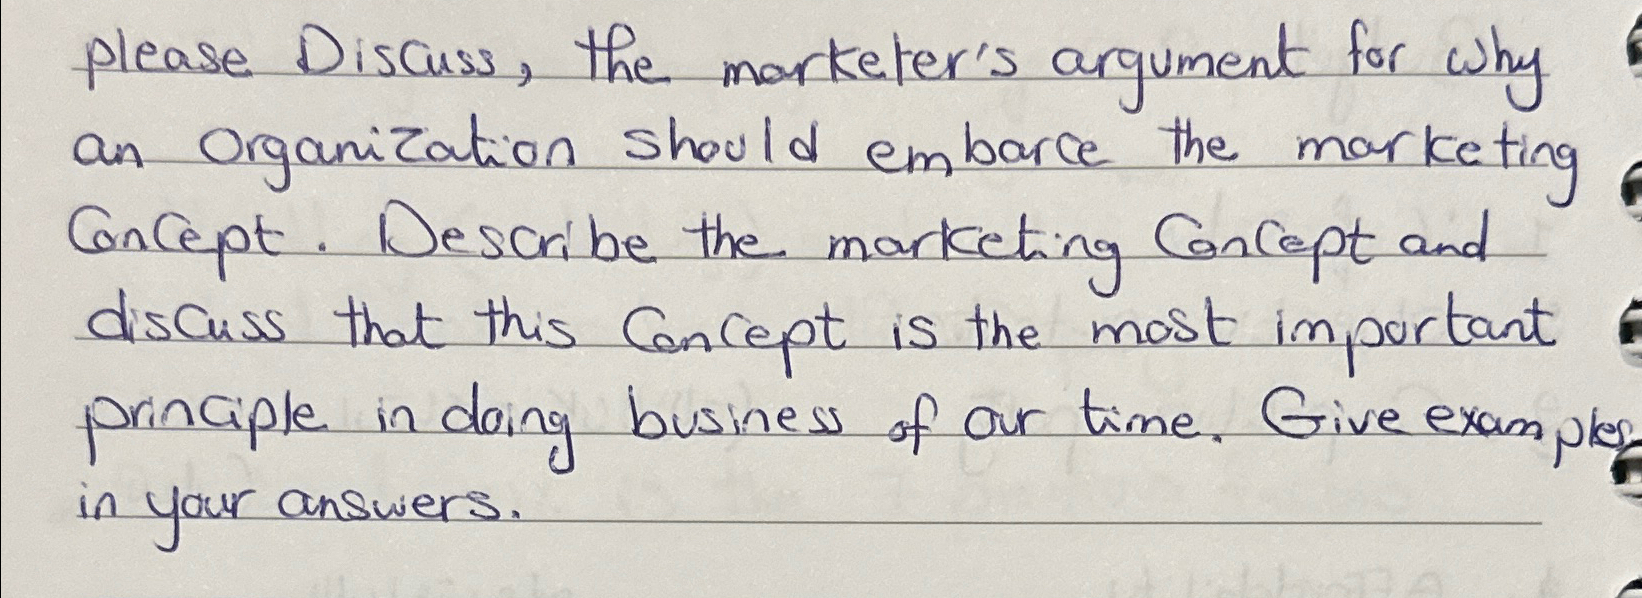 please Discuss, the marketer's argument for why
an organization should embarce the marketing
Concept. Describe the marketing Concept and
discuss that this Concept is the most important
principle in doing business of our time. Give examples
in your answers.